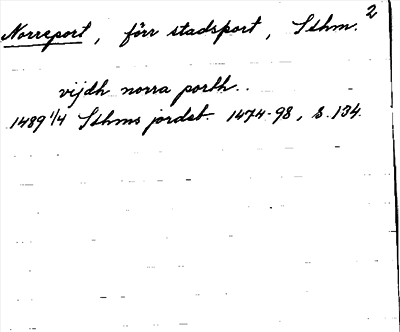 Norreport, förr stadsport, Sthm. 2
vijdh norra porth..
1489 1/4 Sthms jordeb. 1474-98, s. 134.